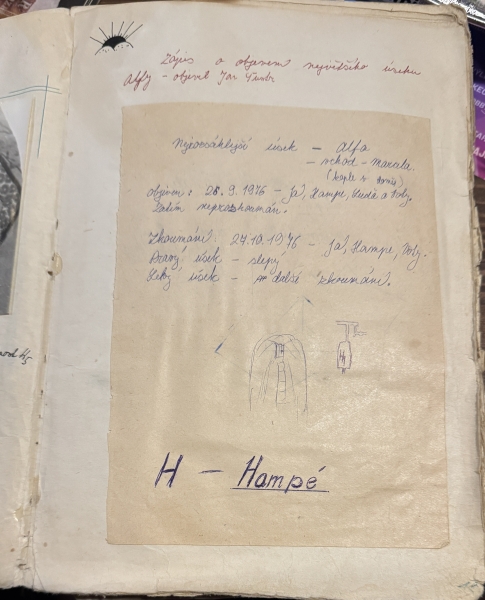 Zápis o objevení největšího úseku
Alfy - objevil Jan
Nejrozsáhlejší úsek - Alfa
- vchod - Macala
(kople v domě)
objeven: 28.9.1976 - Já, Hampe, Luďa a Voly.
Zatím neprozkoumán.
Zkoumání: 27.10.1976 - Já, Hampe, Voly.
Pravý úsek - slepý
Levý úsek - další zkoumání.
H - Hampé